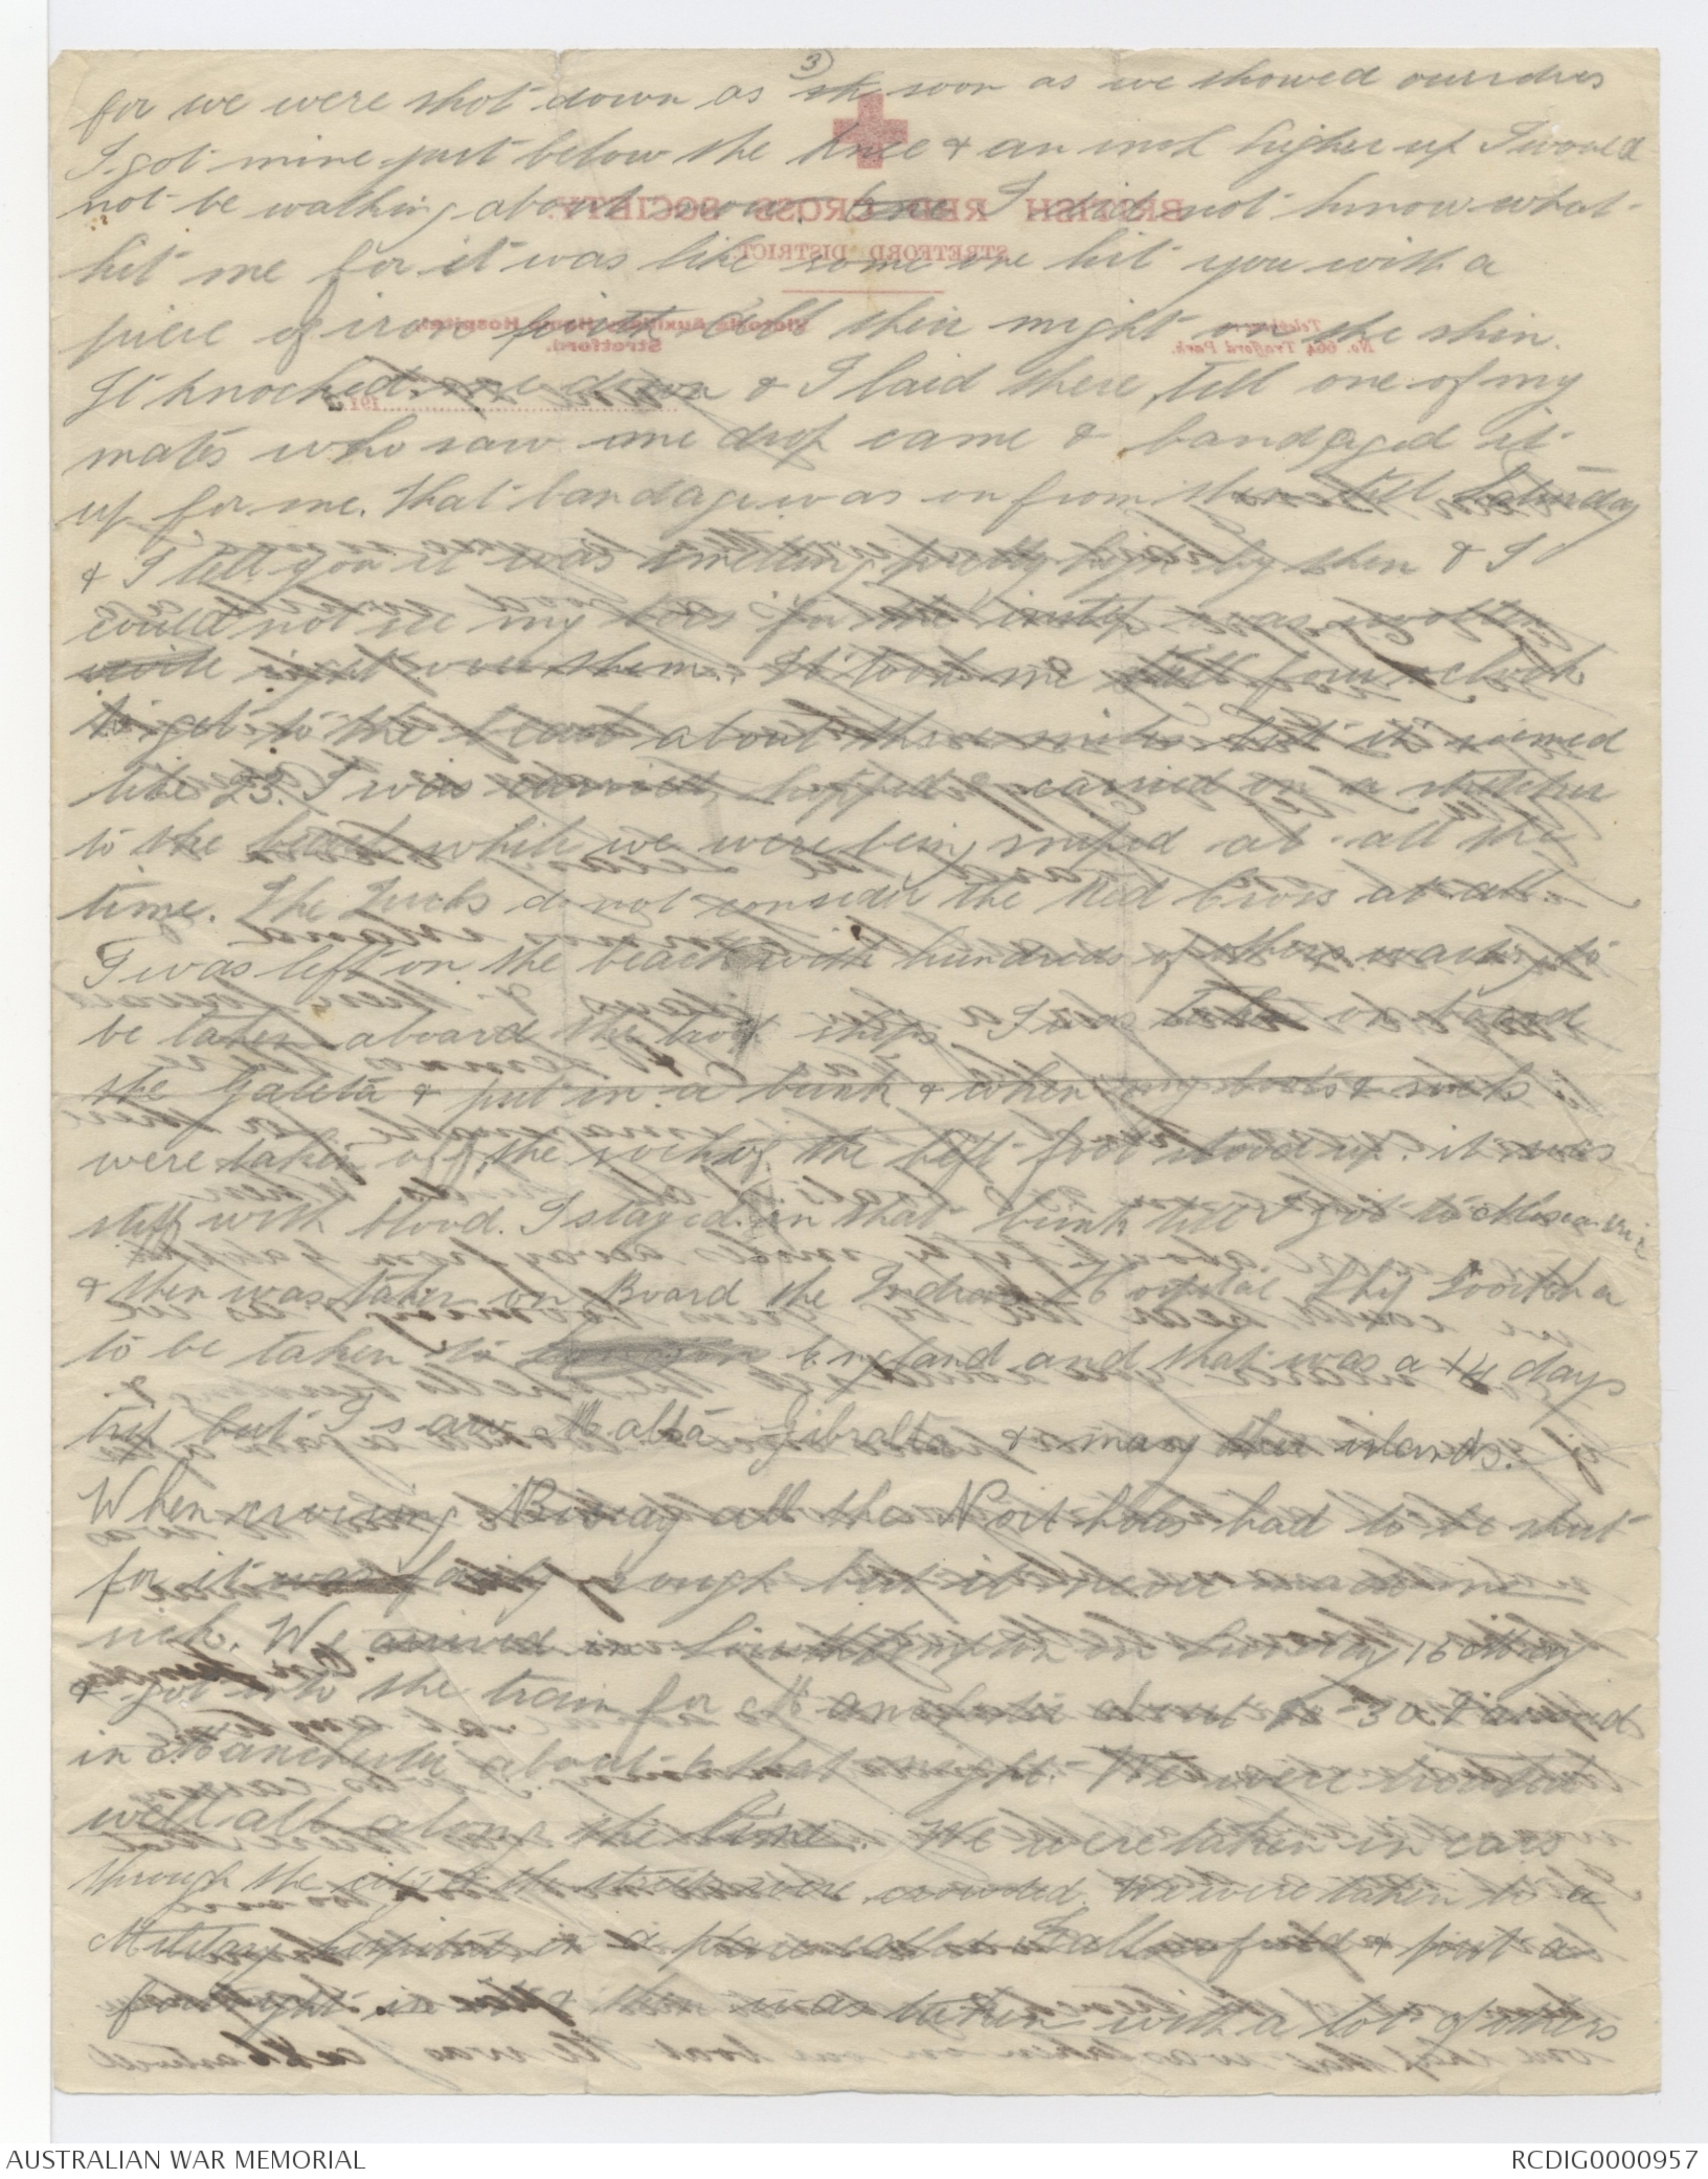 3
for we were shot down as soon as we showed ourselves
I got mine just below the knee & an inch higher up I would
not be walking about now. I did not know what
hit me for it was like some one hit you with a
piece of iron right on the shin.
It knocked me down & I laid there till one of my
mates who saw me drop came & bandaged it
up for me. That bandage was on from then till Saturday
& I tell you it was smelling pretty high by then & I
could not see my toes for the instep was swollen
right over them. It took me till four o clock
to get to the beach about three miles but it seemed
like 23. I was carried, hopped & carried on a stretcher
to the beach while we were being sniped at all the
time. The Turks do not consider the Red Cross at all.
I was left on the beach with hundreds of others waiting to
be taken aboard the troop ships. I was taken on board
the Galeka & put in a bunk & when my boots & socks
were taken off the sock of the left foot stood up. it was
stiff with blood. I stayed in that bunk till I got to Alexandria
& then was taken on Board the Indian Hospital Ship Goorkha
to be taken to England and that was a 14 days
trip but I saw Malta Gibralta & many other islands.
When crossing Biscay all the Port holes had to be shut
for it was fairly rough but it never made me
sick. We arrived in Southampton on Sunday 16 May
& got into the train for Manchester about 10-30 & arrived
in Manchester about 6 that night. We were treated
well all along the line. We were taken in cars
through the city & the streets were crowded. We were taken to a
Military hospital in a place called & spent a
fortnight in & then was taken with a lot of others
BRITISH RED CROSS SOCIETY.
STRETFORD DISTRICT.
Victoria Auxiliary Home Hospital,
Stretford.
Telephone
No. 664 Trafford Park.
191
AUSTRALIAN WAR MEMORIAL
RCDIG0000957